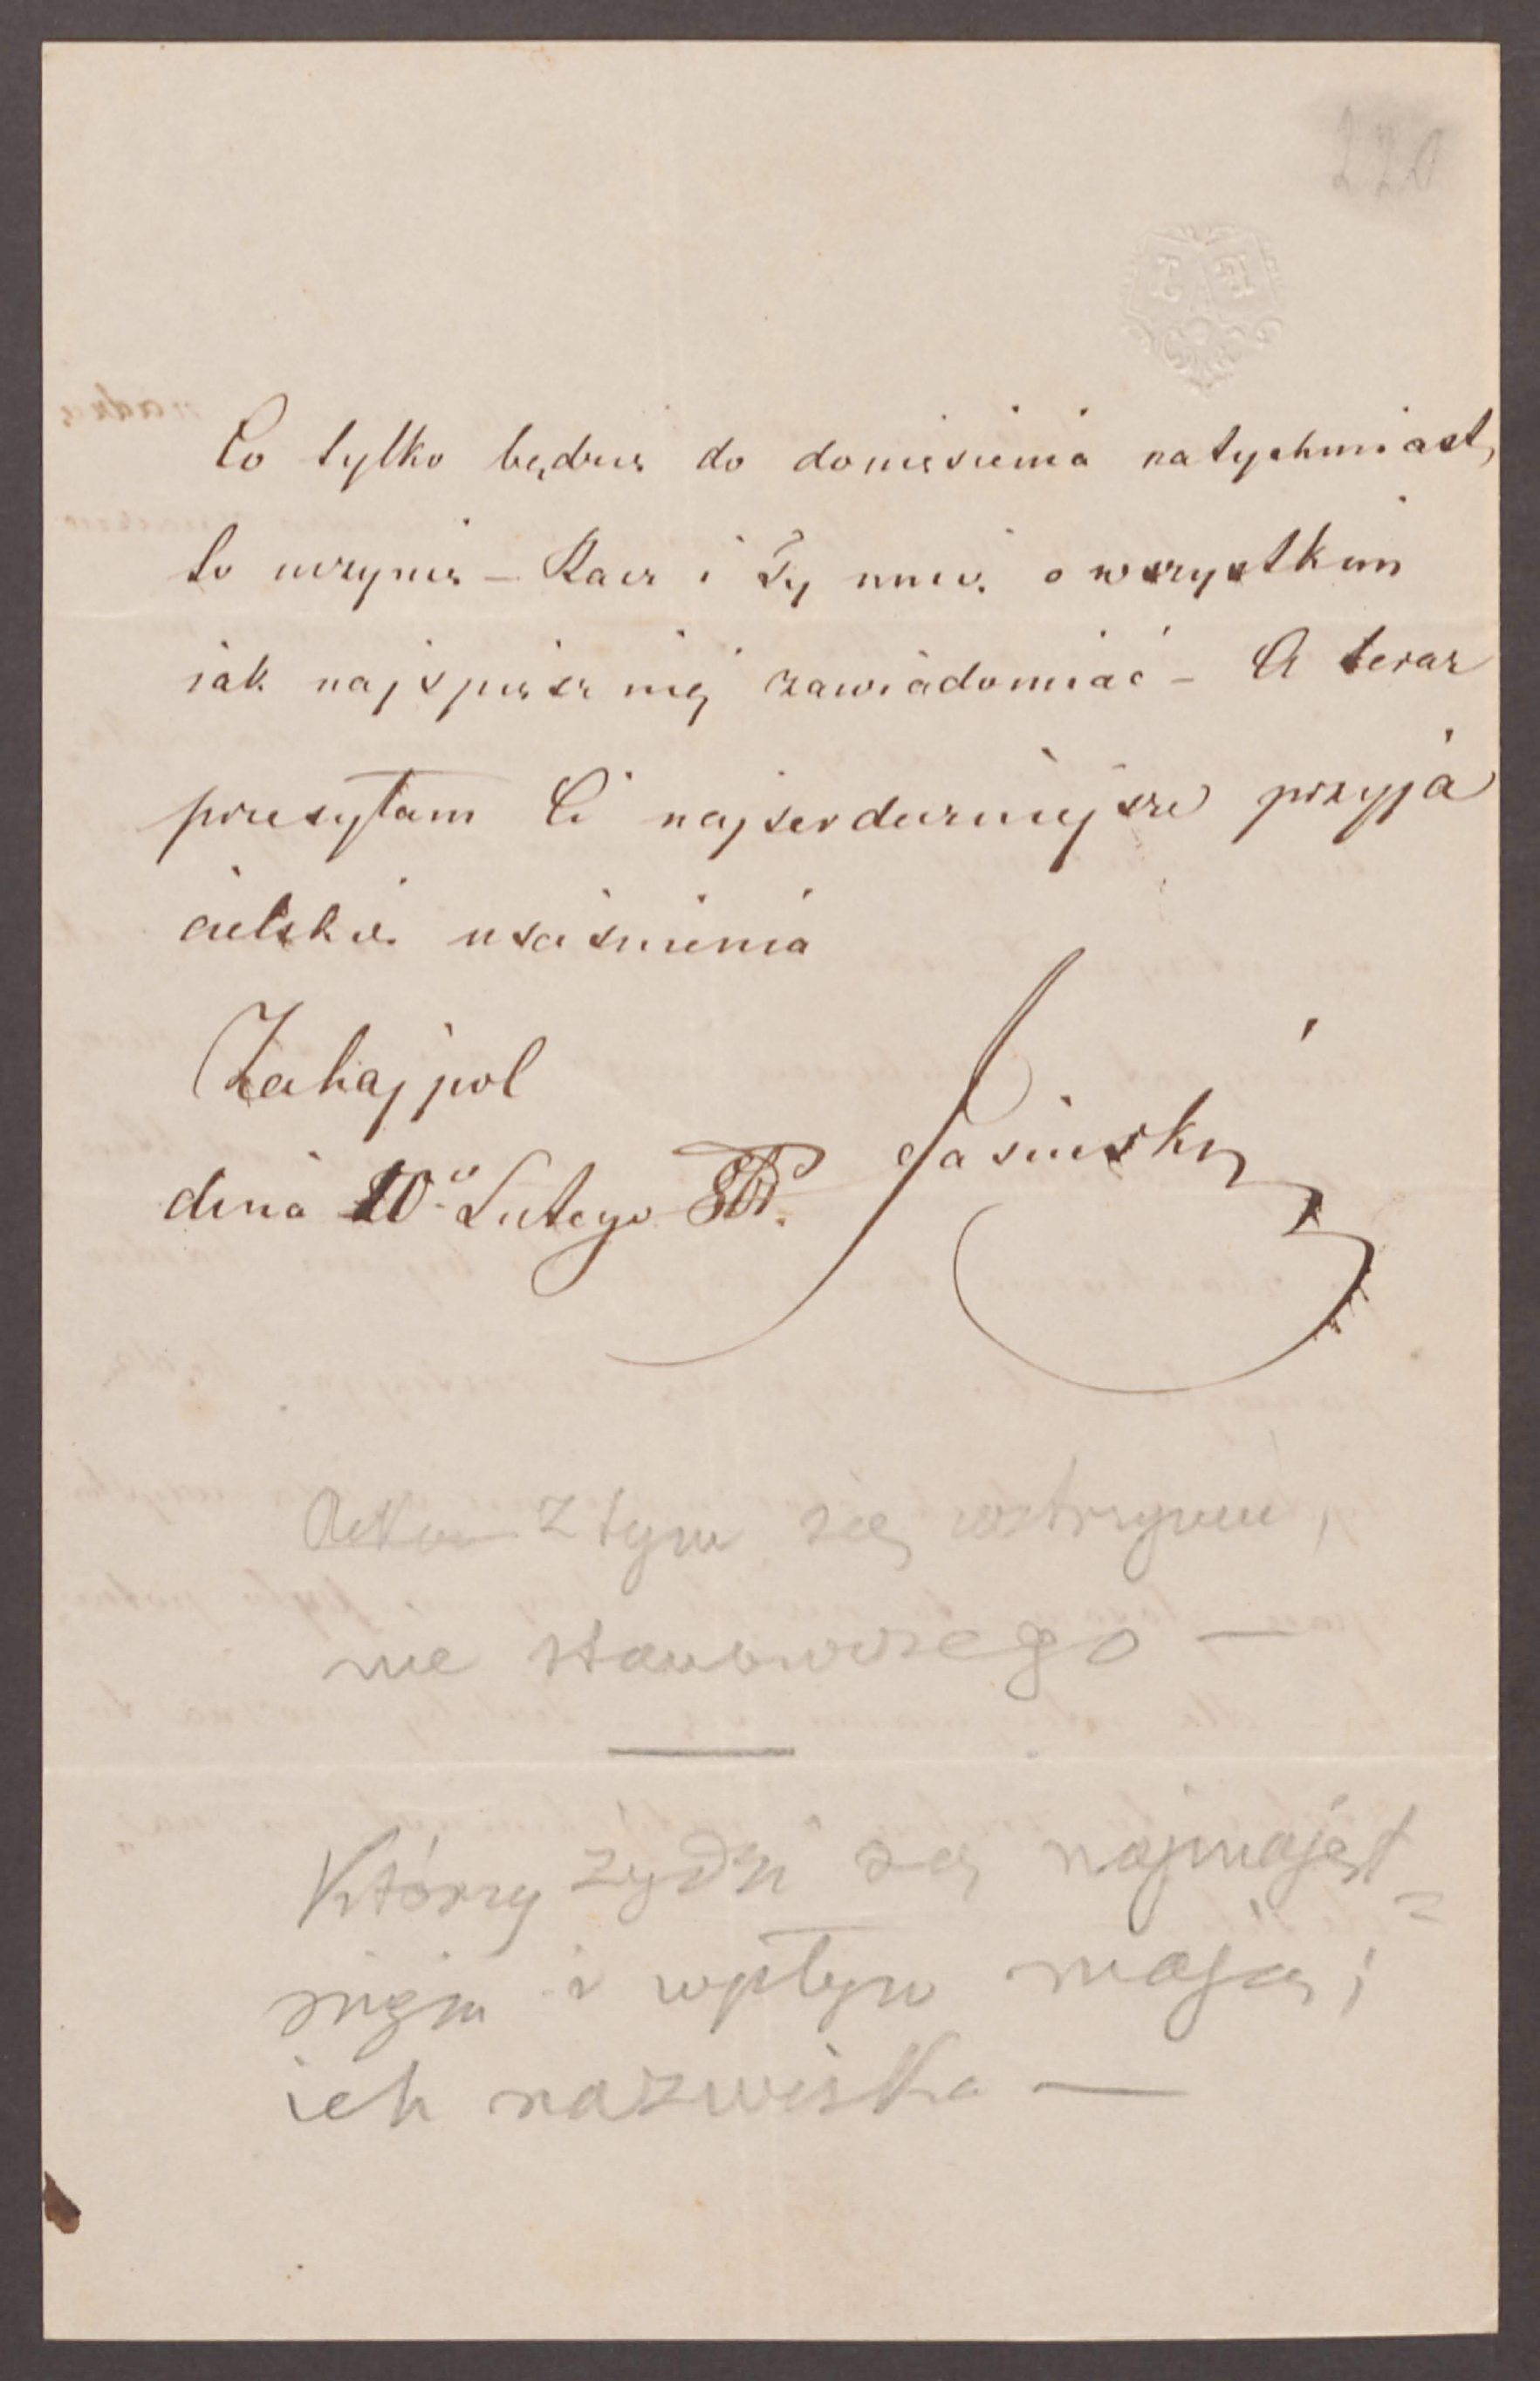 220
Co tylko będzie do doniesienia natychmiast
to uczynię – Racz i Ty mnie o wszystkim
jak najspieszniej zawiadomiać – A teraz
przesyłam Ci najserdeczniejsze przyja
cielskie uściśnienia
Zahajpol
dnia 10º Lutego
Jasiński
z tym się wstrzymać,
nie stanowczego —
Którzy żydzi są najmajęt=
niejsi i wpływ mają;
ich nazwiska —